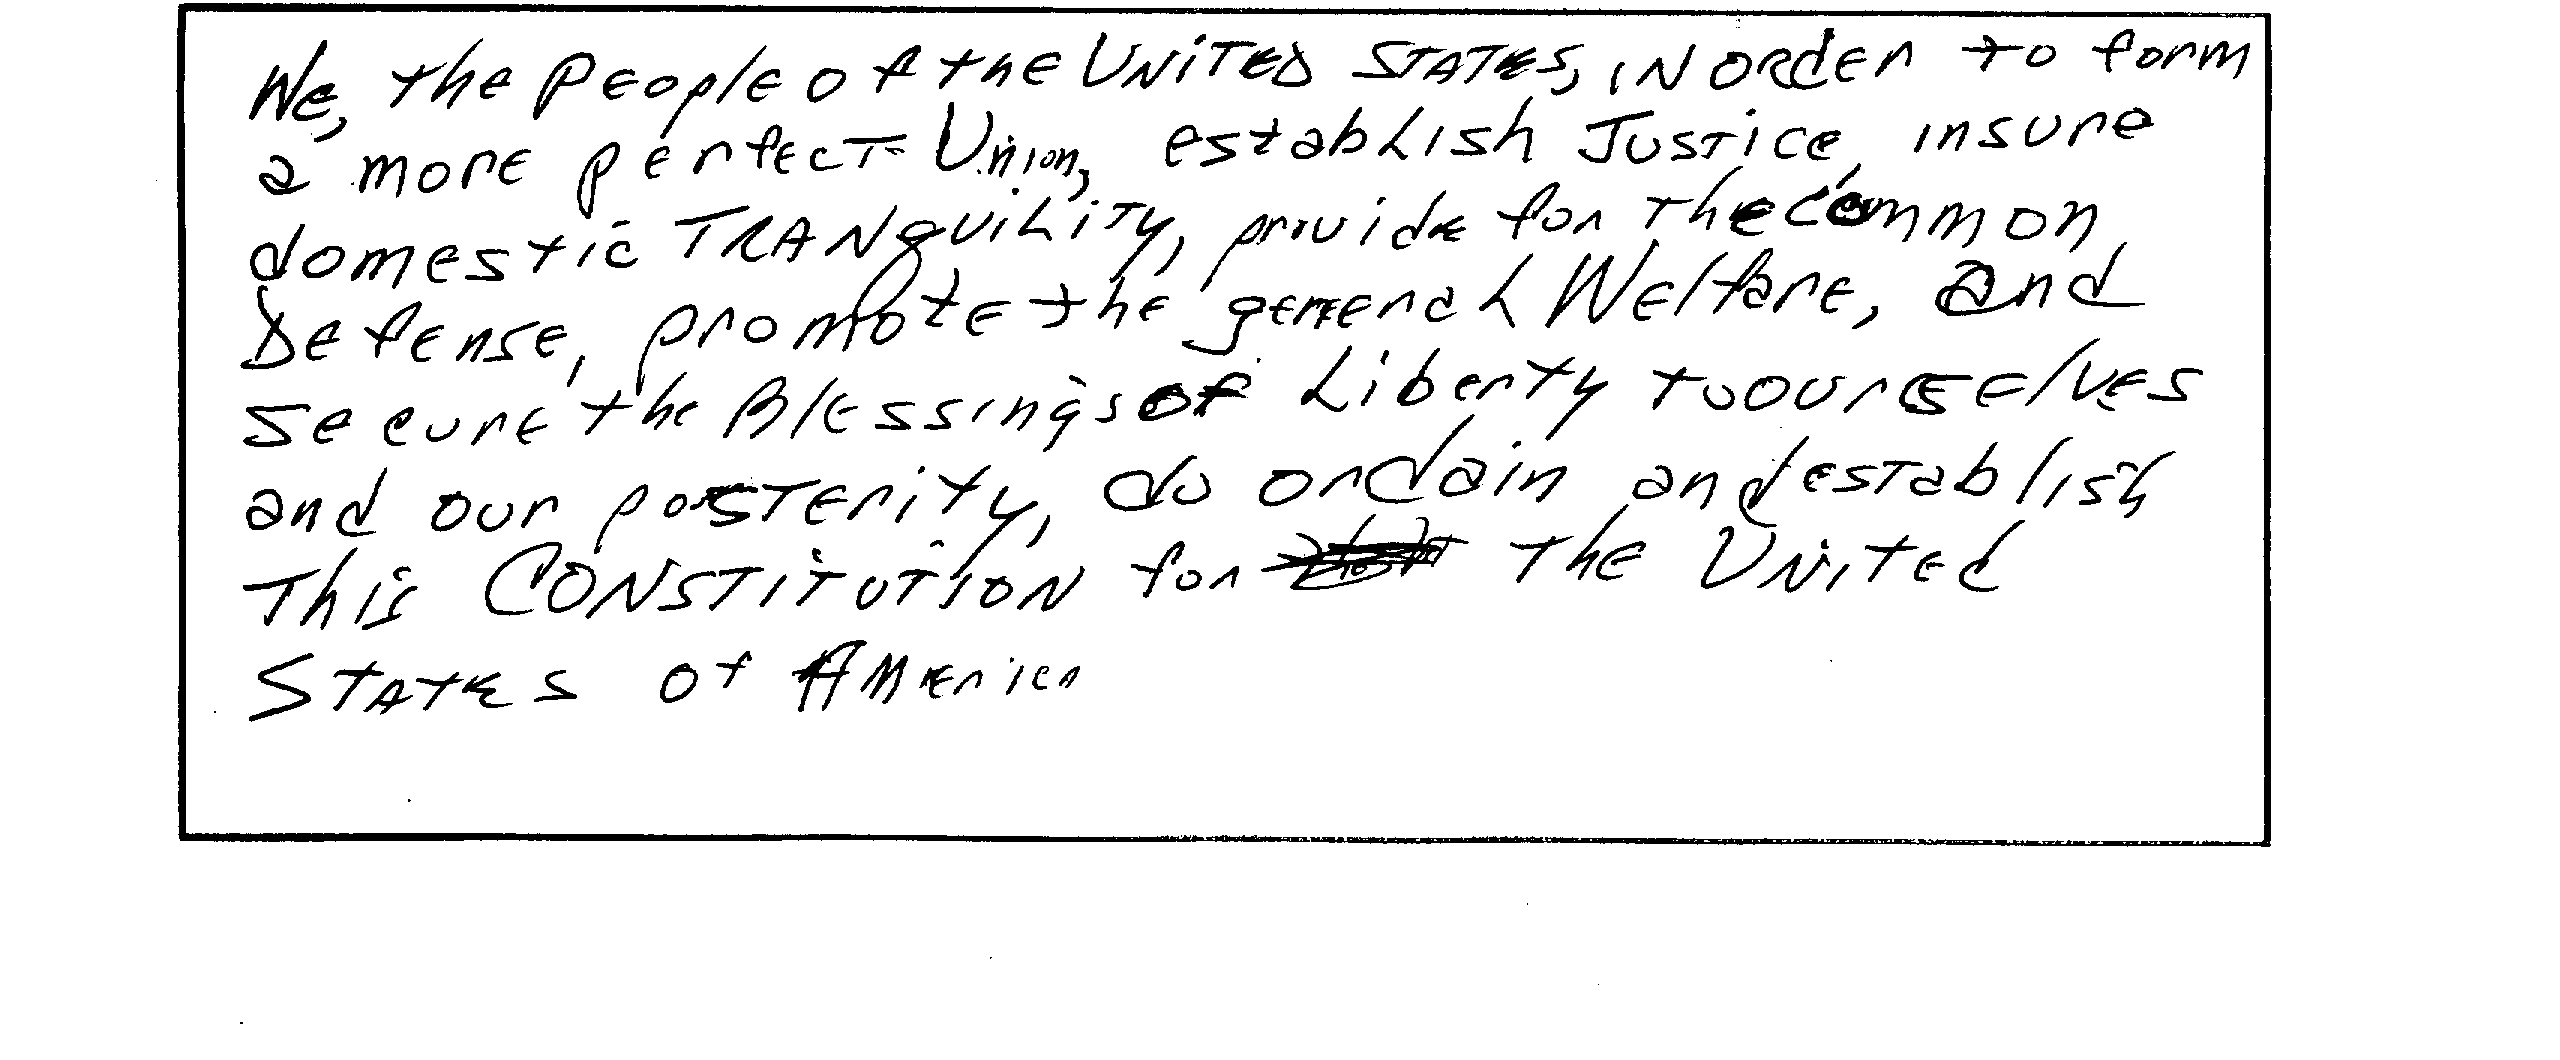 We, the People of the UNITED STATES, IN ORder to form
a more perfect Union, establish Justice, insure
domestic TRANquiLity, provide for the common
Defense, promote the general Welfare, and
secure the Blessings of Liberty to ourselves
and our posterity, do ordain and establish
This CONSTITUTION for the United
States of America